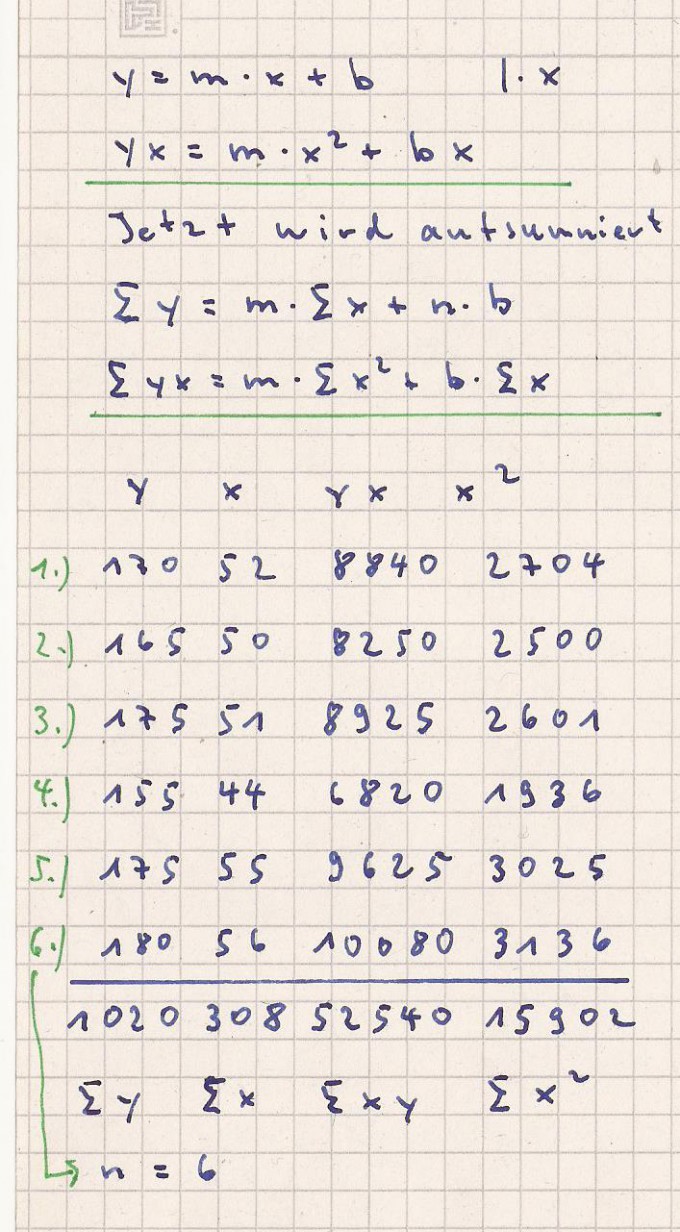 y = m · x + b | · x
yx = m · x² + bx
Jetzt wird aufsummiert
Σy = m · Σx + n · b
Σyx = m · Σx² + b · Σx
y x yx x²
1.) 170 52 8840 2704
2.) 165 50 8250 2500
3.) 175 51 8925 2601
4.) 155 44 6820 1936
5.) 175 55 9625 3025
6.) 180 56 10080 3136
1020 308 52540 15902
Σy Σx Σxy Σx²
n = 6